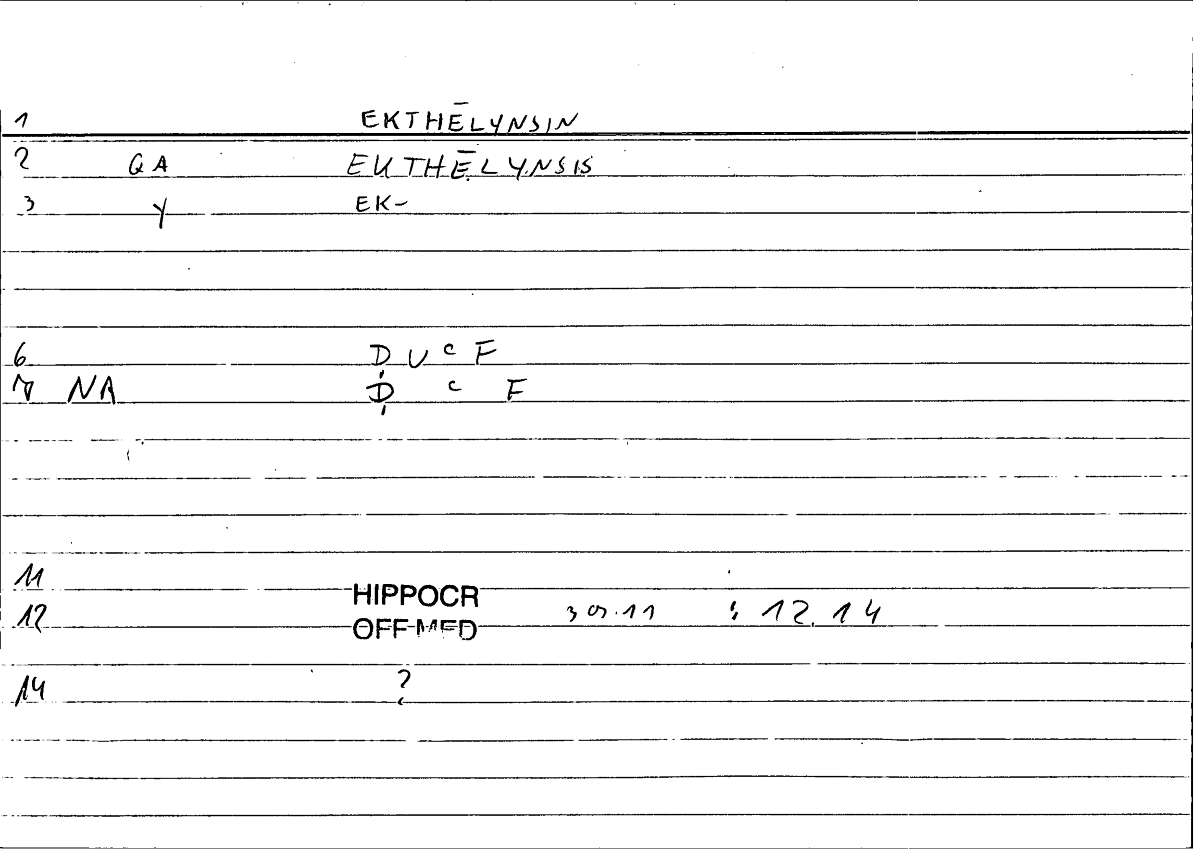 1 EKTHĒLYNSIN
2 GA EKTHĒLYNSIS
3 Y EK-
6 D U C F
7 NA D C F
11
HIPPOCR
12 309.11 : 12.14
OFF MED
14 ?